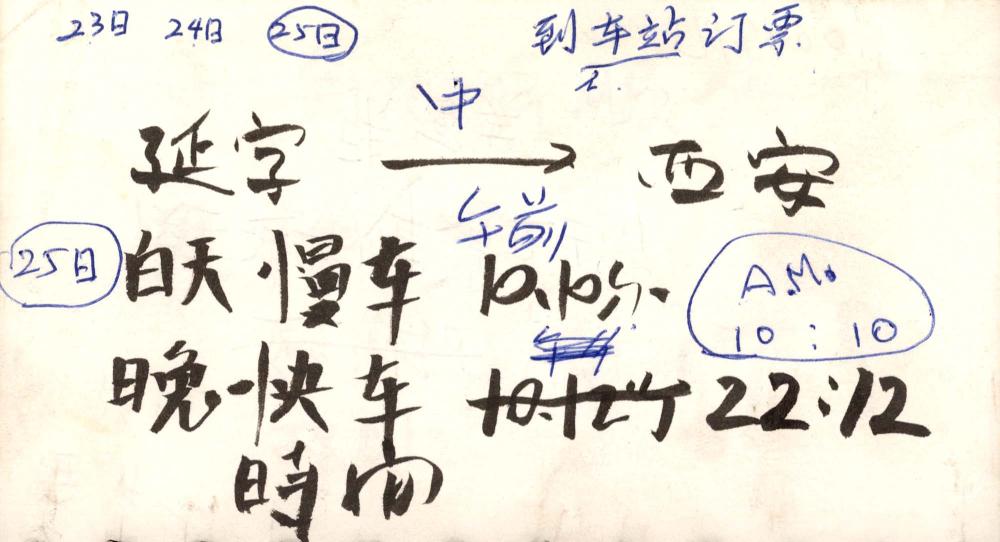 23日 24日 25日 到车站订票
中
延字 → 西安
午前
25日 白天慢车 10.10分. A.M. 10:10
晚快车 10.12分 22:12
時间